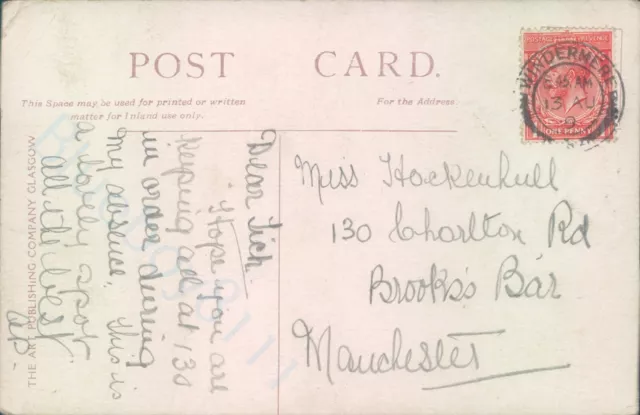 POST CARD.
This Space may be used for printed or written
matter for Inland use only.
For the Address
THE ART PUBLISHING COMPANY GLASGOW
Dear Tich.
Hope you are
keeping all at 130
in order during
my absence. This is
a lovely spot
all the best
Miss Hockenhull
130 Charlton Rd
Brooks's Bar
Manchester
WINDERMERE
13 AU
ONE PENNY